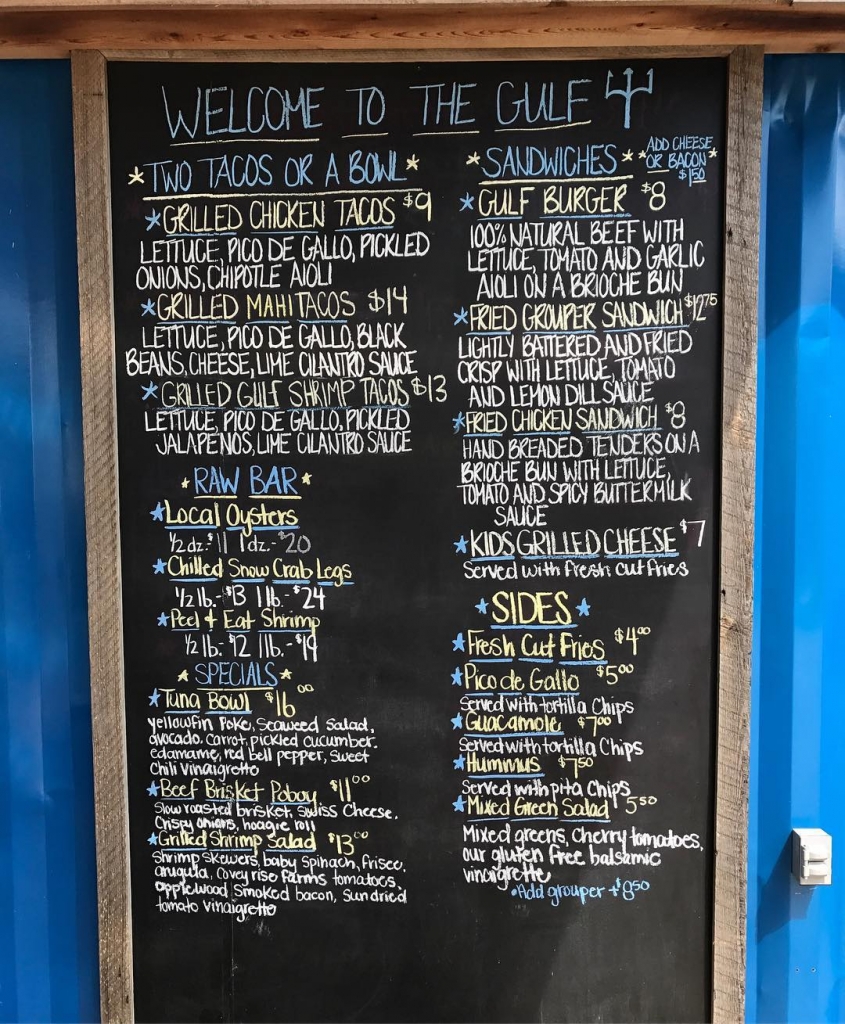 WELCOME TO THE GULF
* TWO TACOS OR A BOWL *
* GRILLED CHICKEN TACOS $9
LETTUCE, PICO DE GALLO, PICKLED
ONIONS, CHIPOTLE AIOLI
* GRILLED MAHI TACOS $14
LETTUCE, PICO DE GALLO, BLACK
BEANS, CHEESE, LIME CILANTRO SAUCE
* GRILLED GULF SHRIMP TACOS $13
LETTUCE, PICO DE GALLO, PICKLED
JALAPENOS, LIME CILANTRO SAUCE
* RAW BAR *
* Local Oysters
1/2 dz.-$11 1 dz.-$20
* Chilled Snow Crab Legs
1/2 lb.-$13 1 lb.-$24
* Peel + Eat Shrimp
1/2 lb.-$12 1 lb.-$19
* SPECIALS *
* Tuna Bowl $16.00
yellowfin Poke, Seaweed Salad,
avocado, carrot, pickled cucumber,
edamame, red bell pepper, Sweet
Chili Vinaigrette
* Beef Brisket Poboy $11.00
Slow roasted brisket, Swiss Cheese,
Crispy onions, hoagie roll
* Grilled Shrimp Salad $13.00
Shrimp skewers, baby spinach, frisee,
arugula, Covey rise Farms tomatoes,
applewood smoked bacon, Sundried
tomato vinaigrette
* SANDWICHES *
* ADD CHEESE
OR BACON *
$1.50
* GULF BURGER $8
100% NATURAL BEEF WITH
LETTUCE, TOMATO AND GARLIC
AIOLI ON A BRIOCHE BUN
* FRIED GROUPER SANDWICH $12.75
LIGHTLY BATTERED AND FRIED
CRISP WITH LETTUCE, TOMATO
AND LEMON DILL SAUCE
* FRIED CHICKEN SANDWICH $8
HAND BREADED TENDERS ON A
BRIOCHE BUN WITH LETTUCE,
TOMATO AND SPICY BUTTERMILK
SAUCE
* KIDS GRILLED CHEESE $7
Served with fresh cut fries
* SIDES *
* Fresh Cut Fries $4.00
* Pico de Gallo $5.00
Served with tortilla Chips
* Guacamole $7.00
Served with tortilla Chips
* Hummus $7.50
Served with pita Chips
* Mixed Green Salad 5.50
Mixed greens, Cherry tomatoes,
our gluten free balsamic
vinaigrette
• Add grouper +$8.50